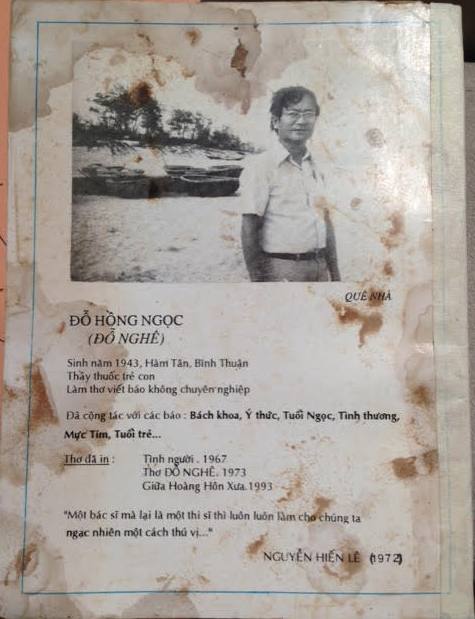 QUÊ NHÀ
ĐỖ HỒNG NGỌC
(ĐỖ NGHÊ)
Sinh năm 1943, Hàm Tân, Bình Thuận
Thầy thuốc trẻ con
Làm thơ viết báo không chuyên nghiệp
Đã cộng tác với các báo : Bách khoa, Ý thức, Tuổi Ngọc, Tình thương,
Mực Tím, Tuổi trẻ...
Thơ đã in : Tình người . 1967
Thơ ĐỖ NGHÊ. 1973
Giữa Hoàng Hôn Xưa.1993
"Một bác sĩ mà lại là một thi sĩ thì luôn luôn làm cho chúng ta
ngạc nhiên một cách thú vị..."
NGUYỄN HIẾN LÊ (1972)